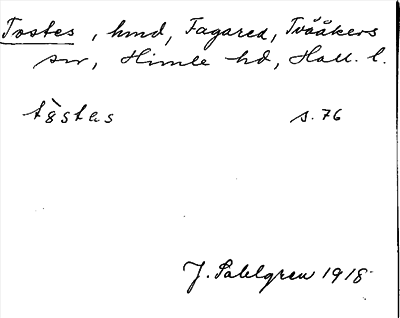 Tostes, hmd, Fagared, Tvååkers
sn, Himle hd, Hall. l.
tòstas s. 76
J. Sahlgren 1918